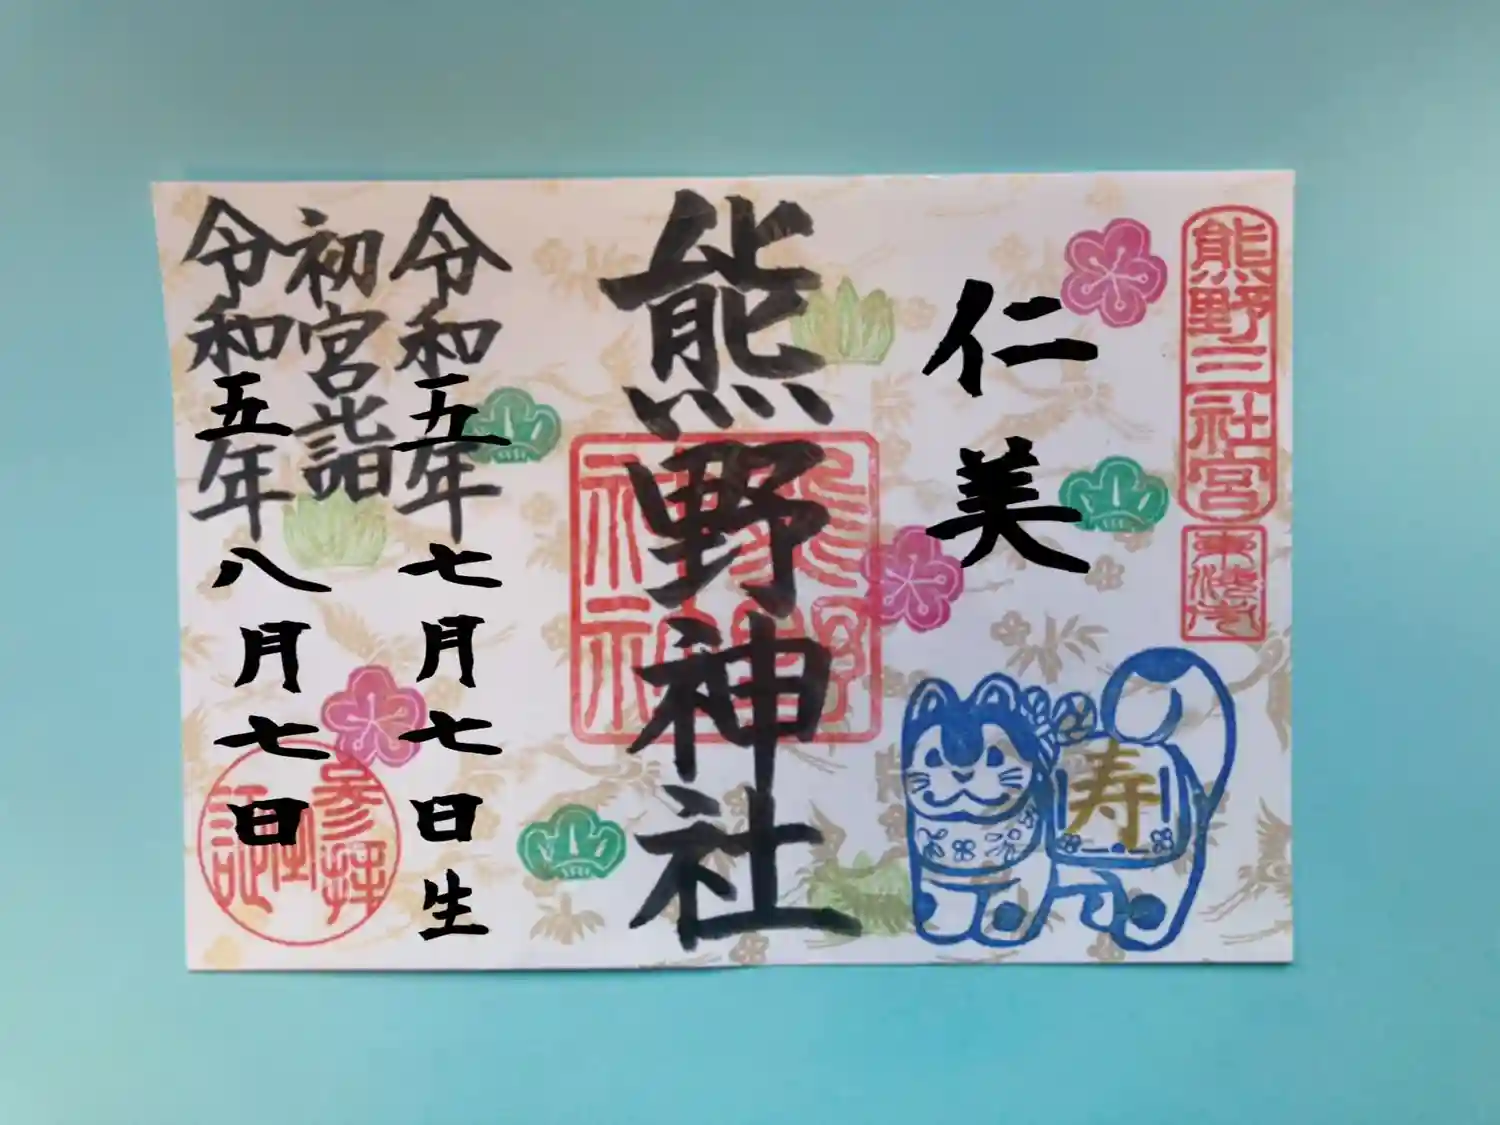 熊野三社宮
仁美
寿
熊野神社
令和五年七月七日生
初宮詣
令和五年八月七日
参拝
証